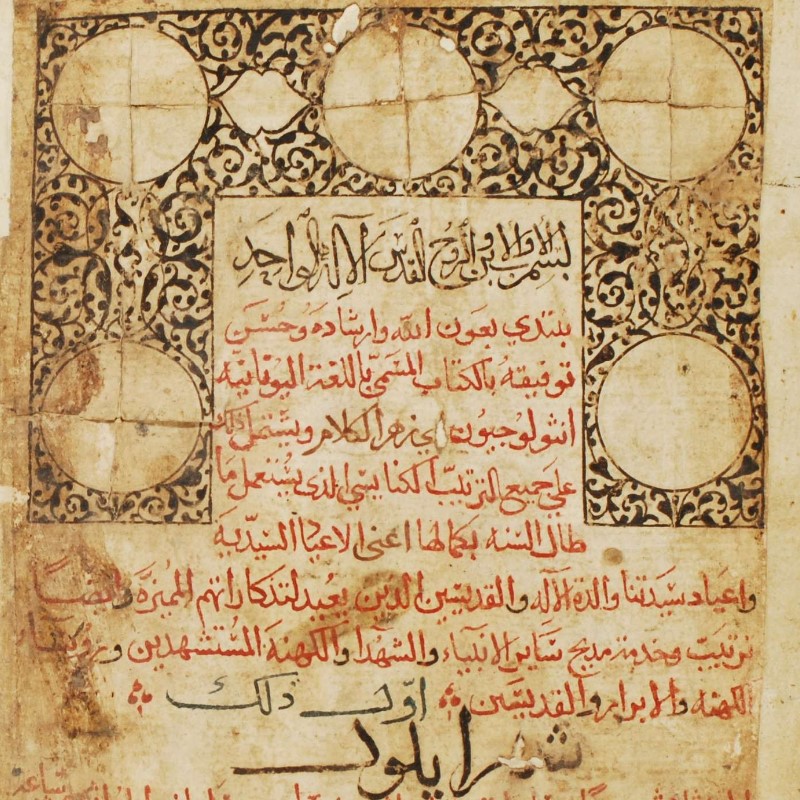 بسم الاب والابن والروح القدس الاله الواحد
نبتدي بعون الله وارشاده وحسن
توفيقه بالكتاب المسمى باللغة اليونانيه
انثولوجيون اي زهر الكلام ويشتمل ذلك
علي جميع الترتيب الكنايسي الذى يستعمل ما
طال السنه بكمالها اعنى الاعياد السيديه
واعياد سيدتنا والدة الاله والقديسين الذين يعيد لتذكاراتهم المميزة وايضا
ترتيب وخدمة مديح ساير الانبياء والشهدا والكهنة المستشهدين وروساء
الكهنه والابرار والقديسين اول ذلك
شهر ايلول